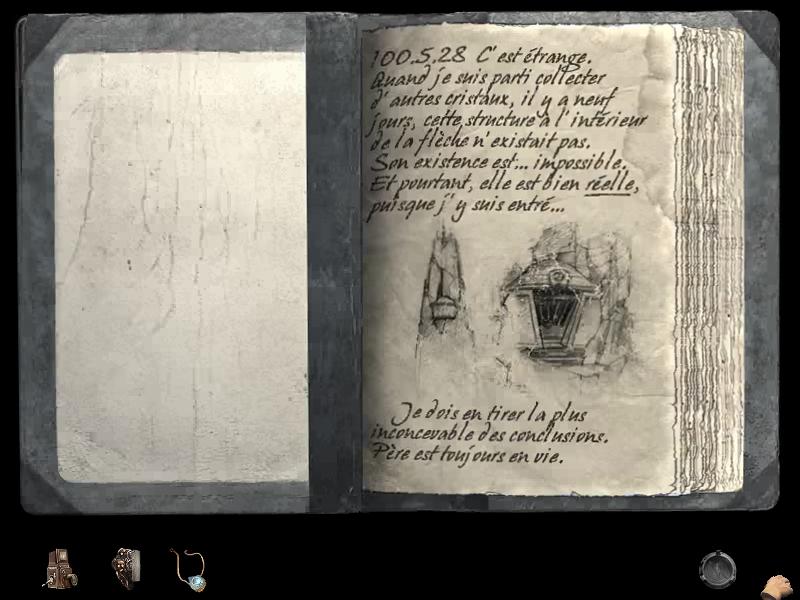 100.5.28 C'est étrange.
Quand je suis parti collecter
d'autres cristaux, il y a neuf
jours, cette structure à l'intérieur
de la flèche n'existait pas.
Son existence est... impossible.
Et pourtant, elle est bien réelle,
puisque j'y suis entré...
Je dois en tirer la plus
inconcevable des conclusions.
Père est toujours en vie.